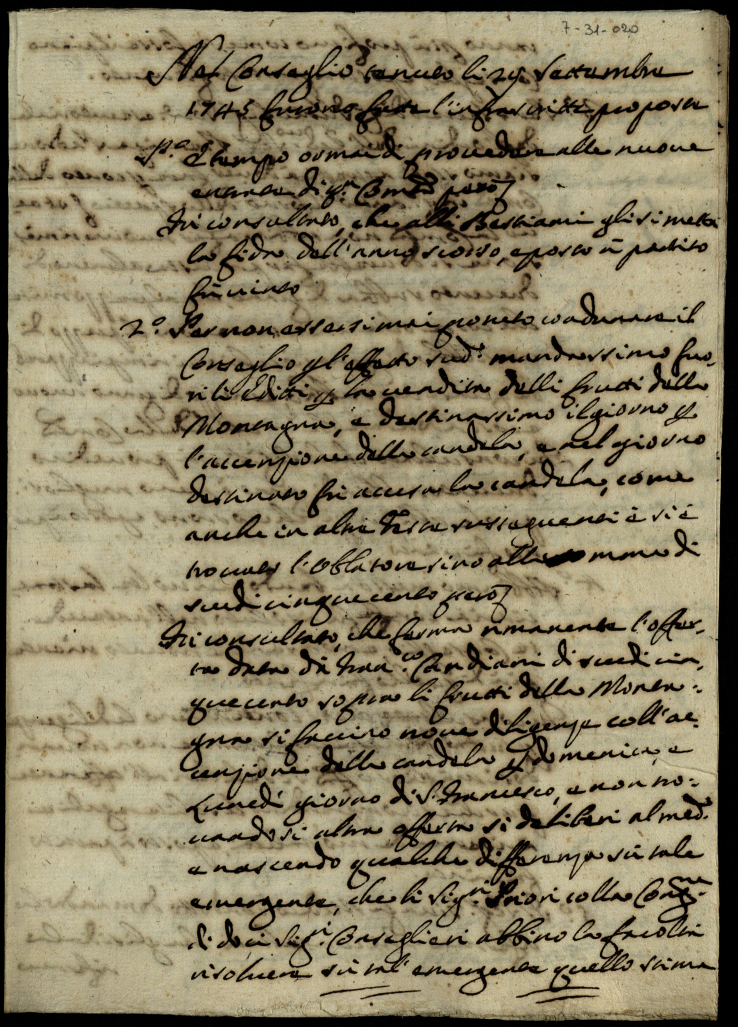 7-31-020
Nel Conseglio tenuto li 29 Settembre
1745 furono fatte l'infrascritte proposte
P.a È tempo ormai di provedere alle nuove
entrate di q.sta Com.tà però
Fù consultato, che alli Bestiami gli si metta
la fida dell'anno scorso, e posto à partito
fù vinto
2.o Per non essersi mai potuto coadunare il
Conseglio p l'effetto sud.o mandassimo fuo-
ri li Editti p la vendita delli frutti della
Montagna, e destinassimo il giorno p
l'accenzione della candela, e nel giorno
destinato fù accesa la candela, come
anche in altre Feste susseguenti e si è
trovato l'Oblatore sino alla somma di
scudi cinquecento però
Fù consultato, che ferma rimanente l'offer-
ta data da Fran.co Candiani di scudi cin-
quecento sopra li frutti della Monta-
gna si faccino nove diligenze coll'ac-
cenzione della candela p domenica, e
Lunedì giorno di S. Francesco, e non tro-
vandosi altra offerta si deliberi al med.o
e nascendo qualche differenza sù tale
emergente, che li Sig.ri Priori colla Cong.ne
di doci Sig.ri Conseglieri abbino la facoltà
risolvere sù tal'emergente quello stima